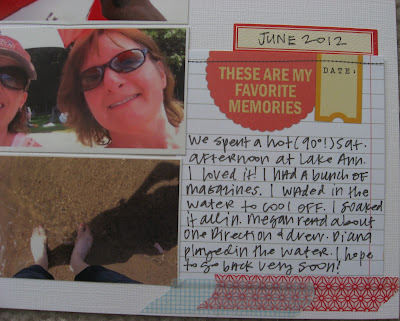 JUNE 2012
THESE ARE MY
FAVORITE
MEMORIES
DATE:
We spent a hot (90°!) Sat.
afternoon at Lake Ann.
I loved it! I had a bunch of
magazines. I waded in the
water to cool off. I soaked
it all in. Megan read about
One Direction & drew. Diana
played in the water. I hope
to go back very soon!